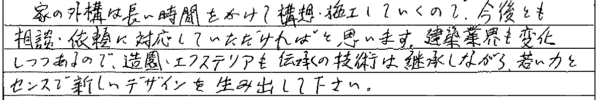 家の外構は長い時間をかけて構想・施工していくので、今後とも
相談・依頼に対応していただければと思います。建築業界も変化
しつつあるので、造園・エクステリアも伝承の技術は継承しながら、若い力と
センスで新しいデザインを生み出して下さい。